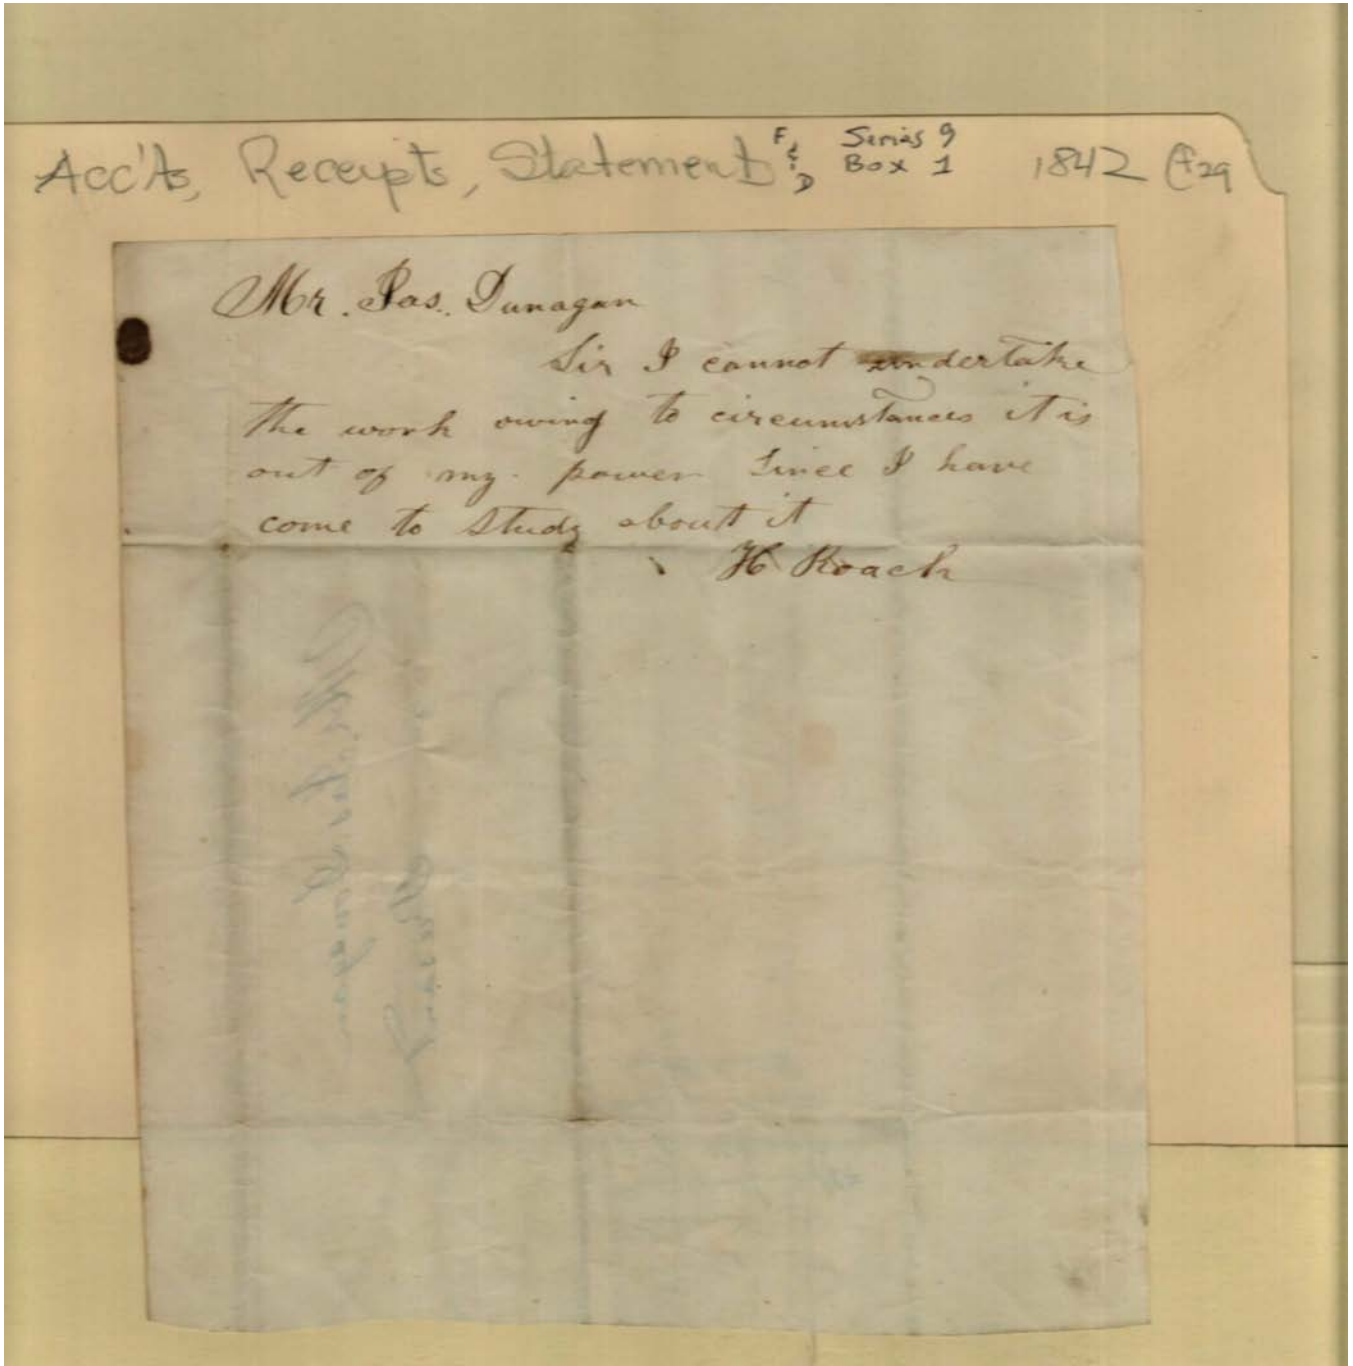 Acc'ts, Receipts, Statement F & D Series 9
Box 1 1842 f29
Mr. Jas. Dunagan
Sir I cannot undertake
the work owing to circumstances it is
out of my power Since I have
come to study about it
H Roach